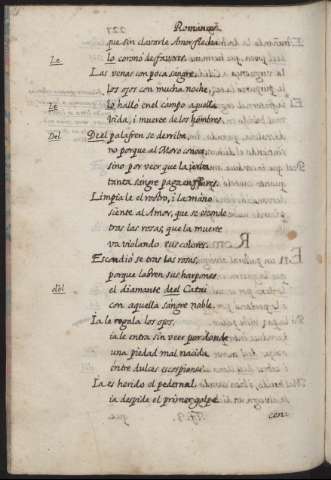 Romances
que sin clavarle Amor flecha
Le lo coronó de favores.
Las venas con poca sangre,
los ojos con mucha noche,
Le lo halló en el campo aquella
vida, i muerte de los hombres.
Del De el palafren se derriba,
no porque al Moro conoce,
sino por veer que la ierba
tanta sangre paga en flores.
Limpiale el rostro, i la mano
siente al Amor, que se esconde
tras las rosas, que la muerte
va violando sus colores.
Escondió se tras las rosas,
porque labren sus harpones
del el diamante de el Catai
con aquella sangre noble.
Ia le regala los ojos,
ia le entra sin veer por donde
una piedad mal nacida
entre dulces escorpiones.
Ia es herido el pedernal
ia despide el primer golpe
cen-